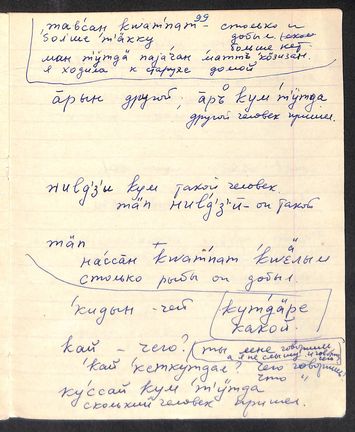 тавсан kwатпат - столько и
больше т'акку добыл,
больше нет
ман т'ӱтдӓ паjачан матть кӧзизан.
я ходила к старухе домой
āрын другой, āръ кум т'ӱтда
другой человек пришел.
нивд'з'и кум такой человек.
тӓп нивд'з'й - он такой
тӓп
нассāн kwатпат kwёлым
столько рыбы он добыл
'кидын - чей
кутдӓре
какой.
кай - чего? ты мне говоришь
а я не слышу и говорю
'кай 'кеткутдал? чего говоришь?
что "
куссай кум т'ӱтда
сколький человек пришел.